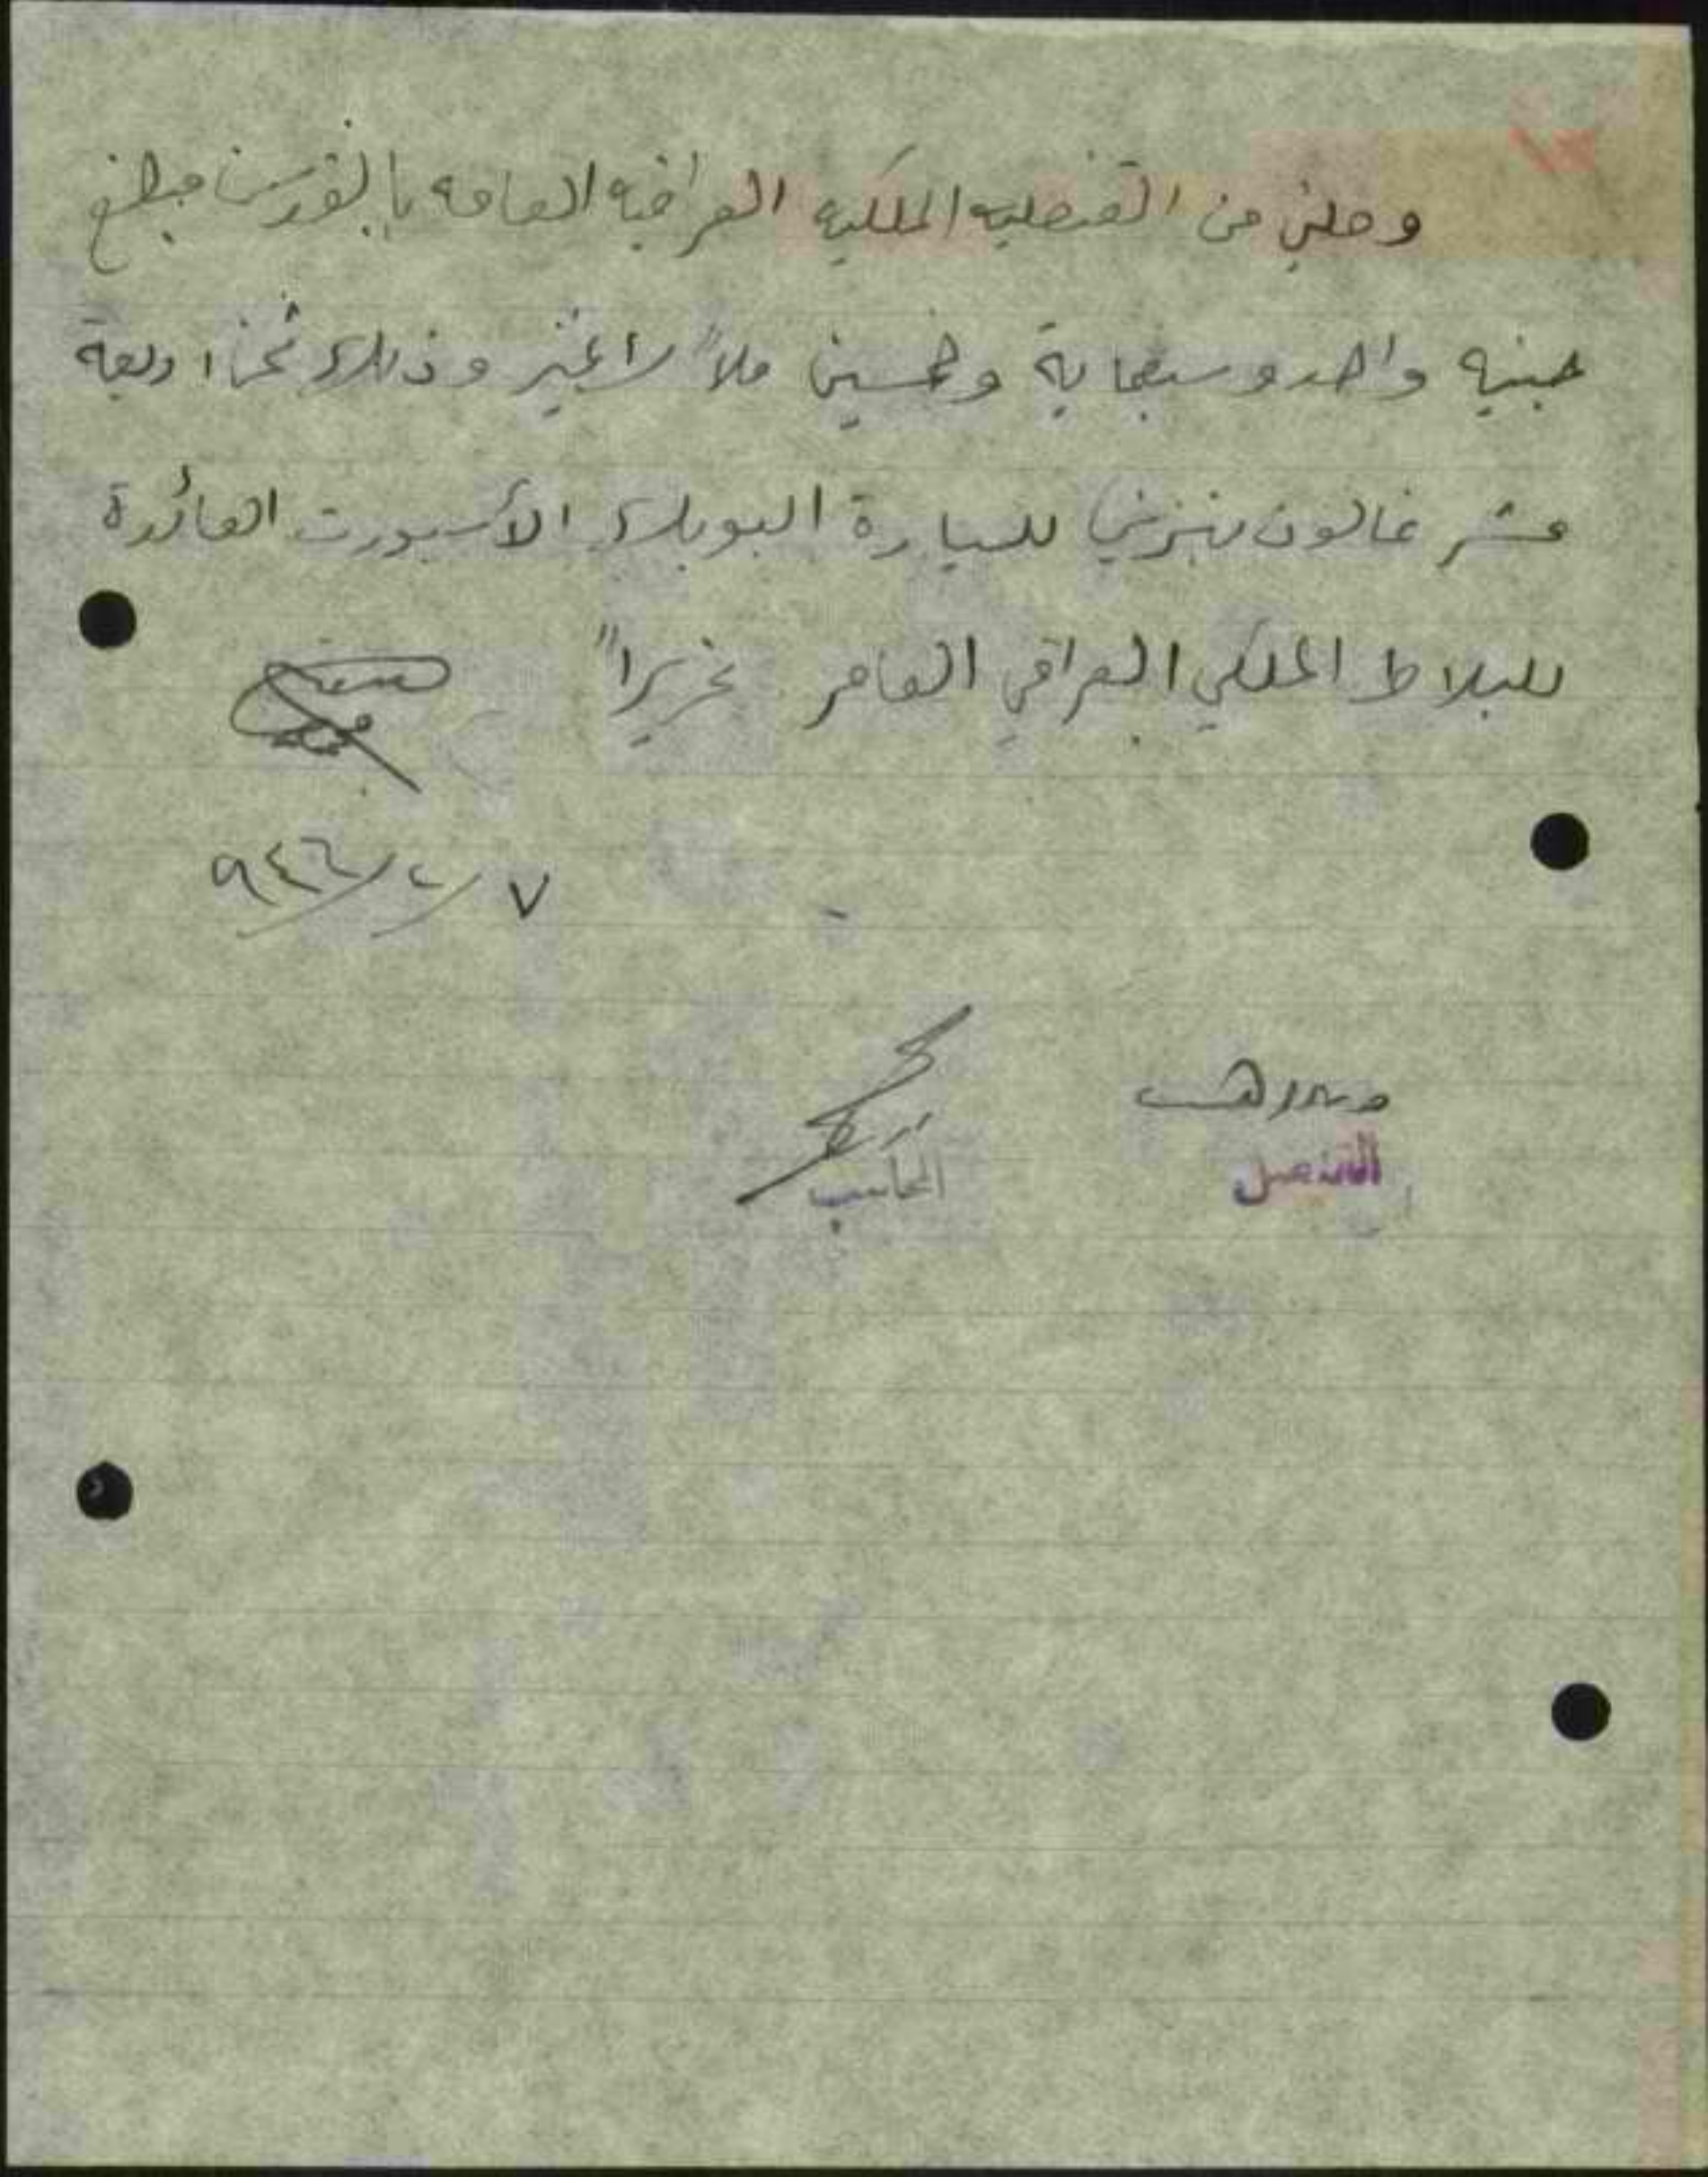 وصلني من القنصلية الملكية العراقية العامة بالقدس مبلغ
جنيه واحد وسبعماية وخمسين ملاً لا غير وذلك ثمن اربعة
عشر غالون بنزين للسيارة البويك الأسبورت العائدة
للبلاط الملكي العراقي العامر تحريراً
٧/٢/٩٤٦
القنصل
المحاسب